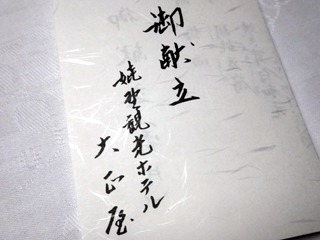 御献立
嬉野観光ホテル
大正屋